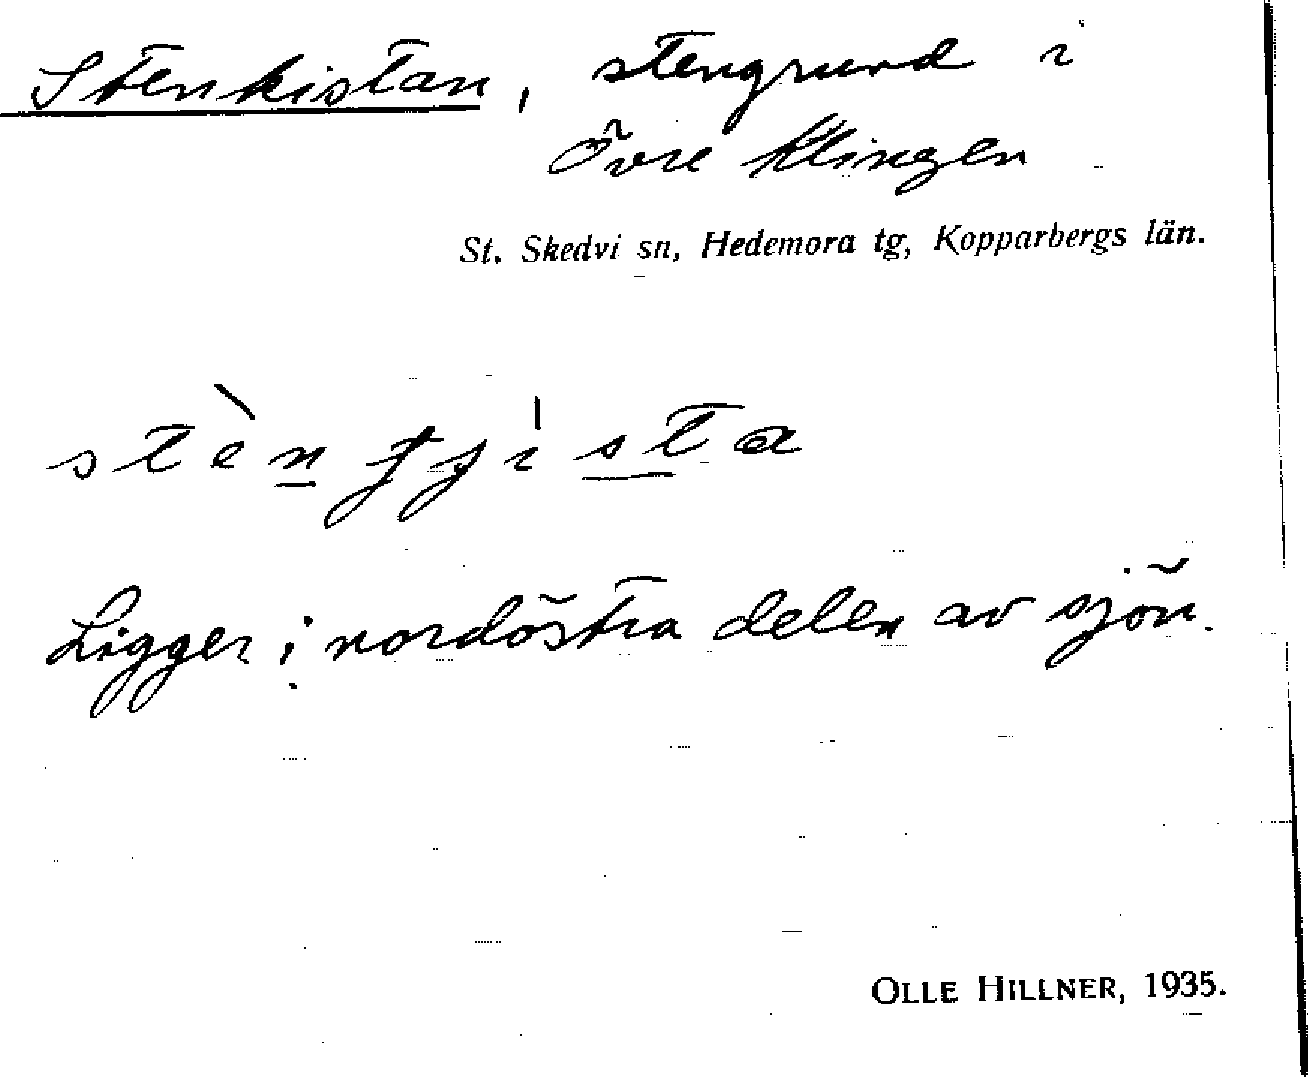 Stenkistan, stengrund i
Övre Klingen
St. Skedvi sn, Hedemora tg, Kopparbergs län.
Ligger i nordöstra delen av sjön.
OLLE HILLNER, 1935.